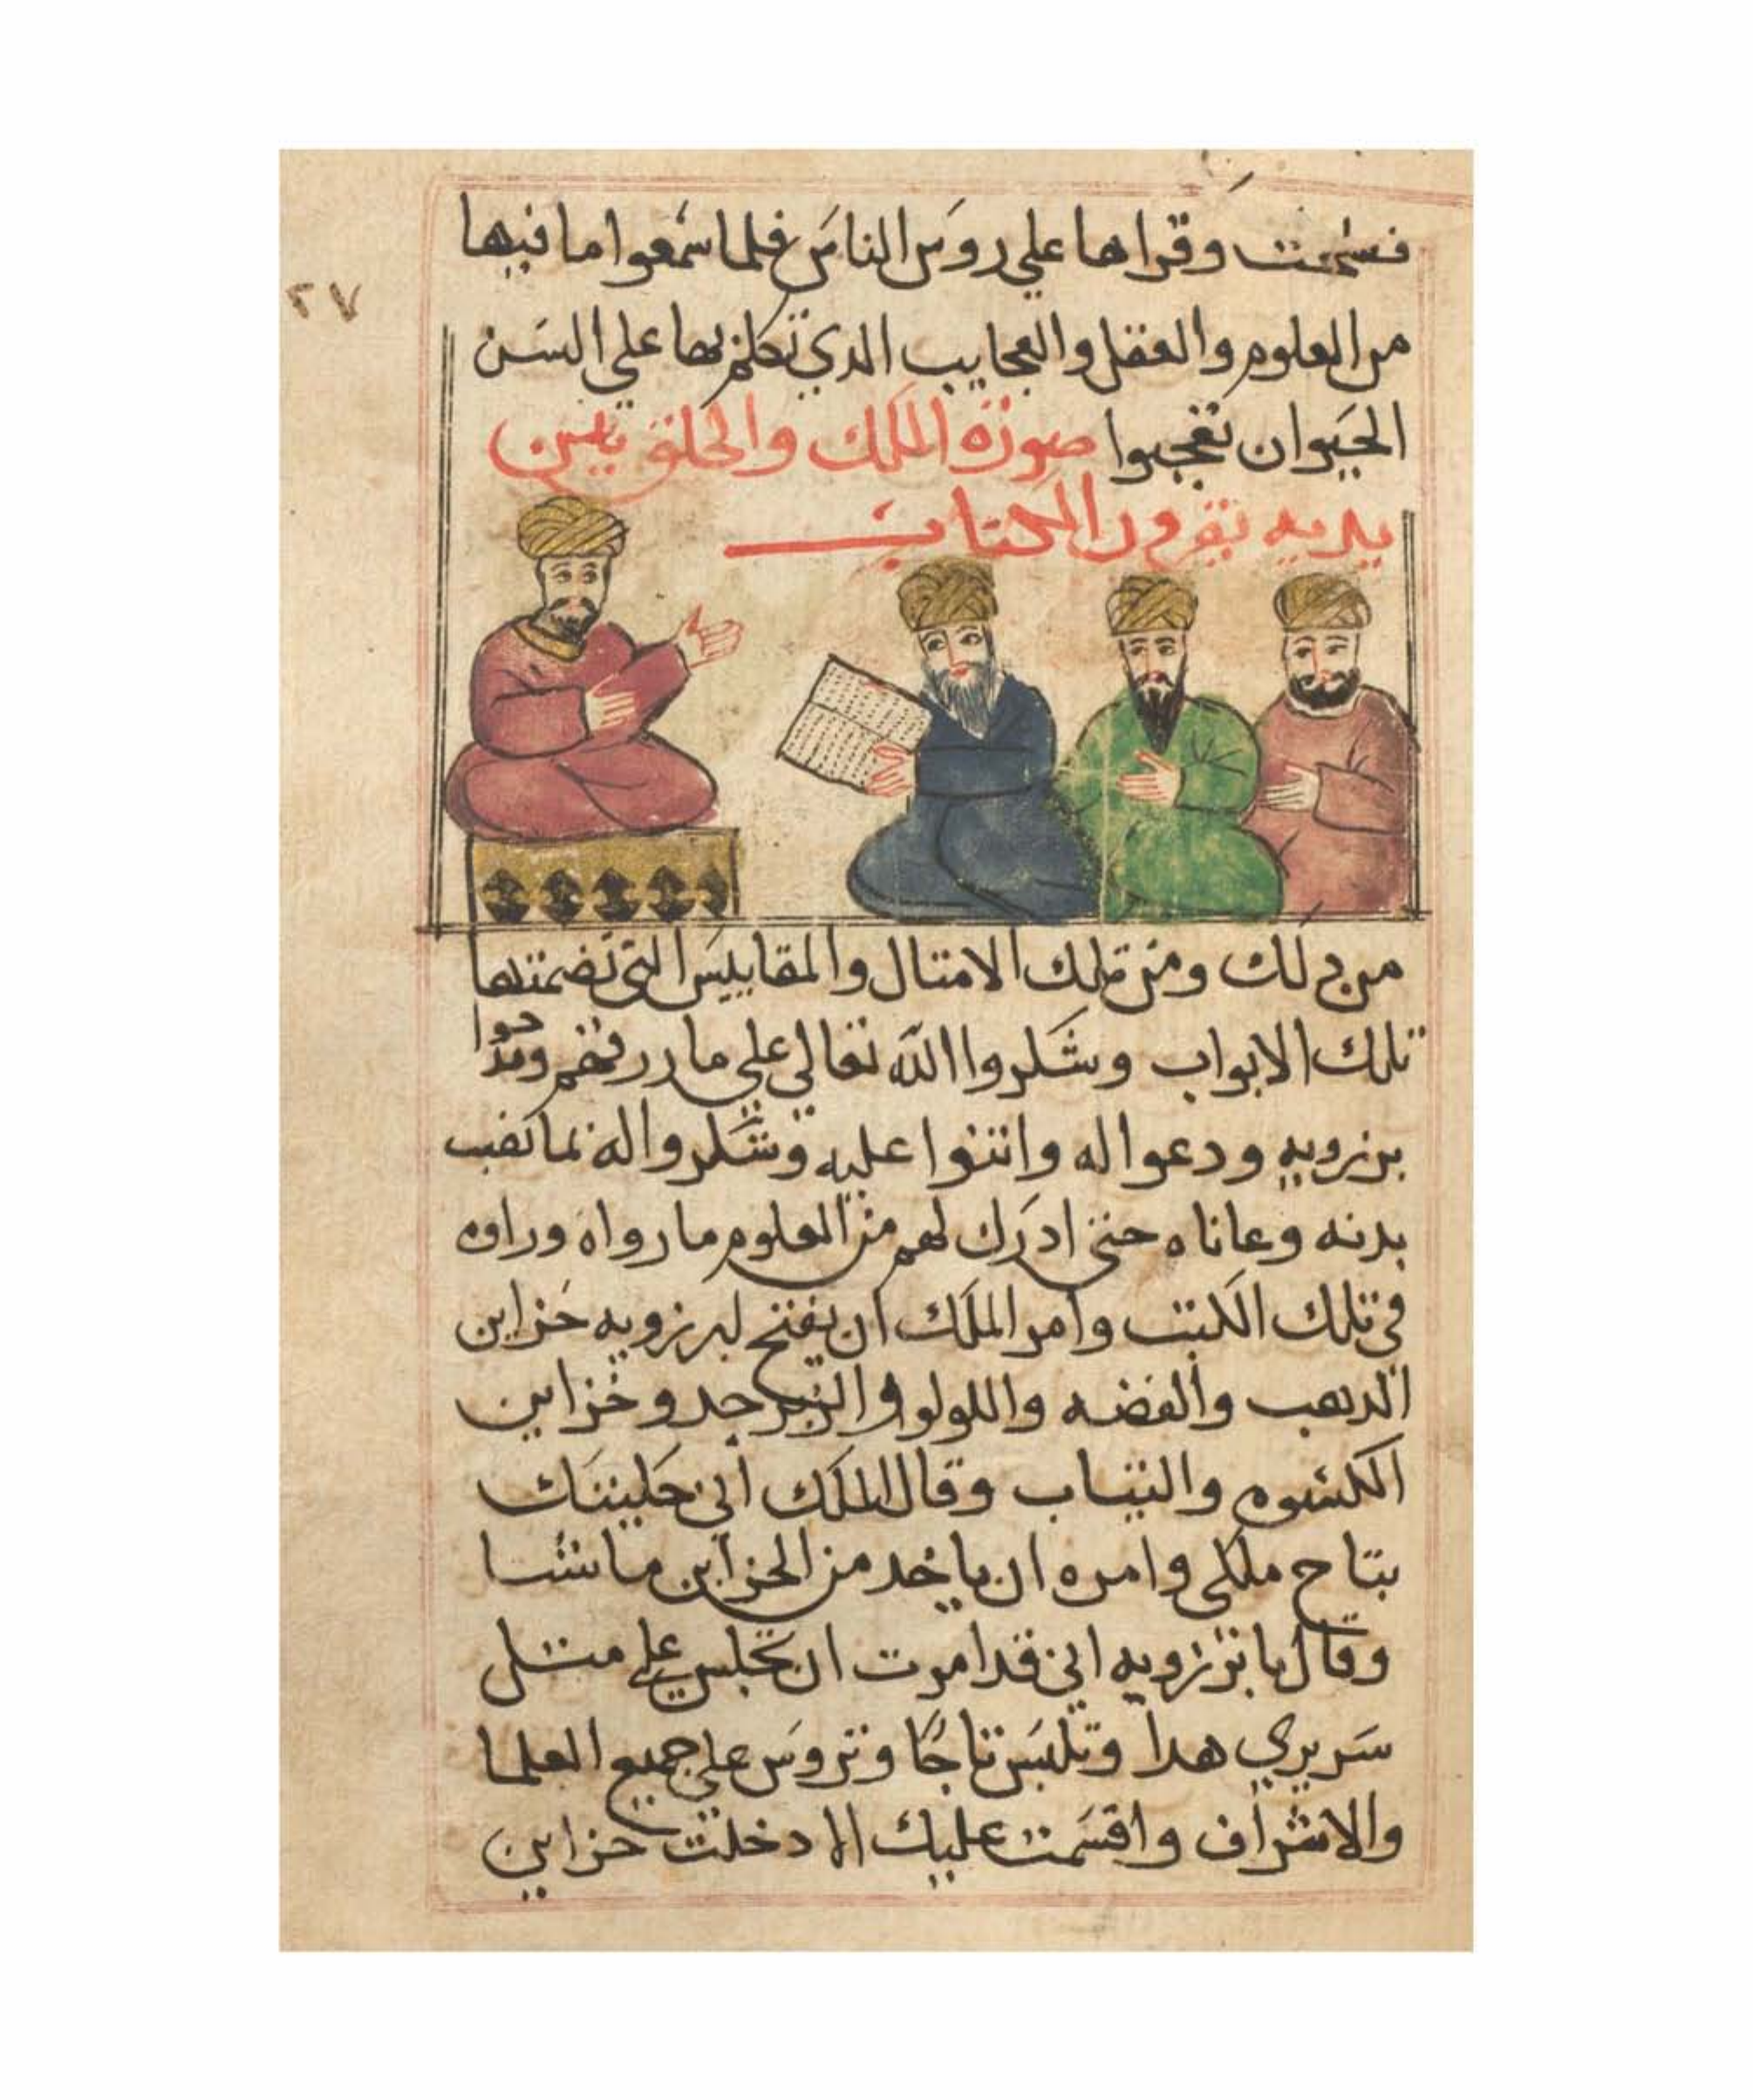 فسمعت وقراها علي روس الناس فلما سمعوا ما فيها
٢٧
من العلوم والعقل والعجايب الدي تكلم بها علي السن
الحيوان تعجبوا صورة الملك والخلق بين
يديه يقرون الكتاب
من دلك ومن تلك الامتال والمقاييس التي تضمنتها
تلك الابواب وشكروا الله تعالي علي ما ررقهم ومدحوا
برزويه ودعوا له واتنوا عليه وشكروا له بما تعب
بدنه وعاناه حتي ادرك لهم من العلوم ما رواه وراوه
في تلك الكتب وامر الملك ان يفتح لبرزويه خزاين
الدهب والفضه واللولو والزبرجد وخزاين
الكسوه والتياب وقال الملك اني حليتك
بتاج ملكي وامره ان ياخد من الخزاين ما شا
وقال يا برزويه اني قد امرت ان تجلس علي متل
سريري هدا وتلبس تاجا وتروس علي جميع العلما
والاشراف واقسمت عليك الا دخلت خزاين